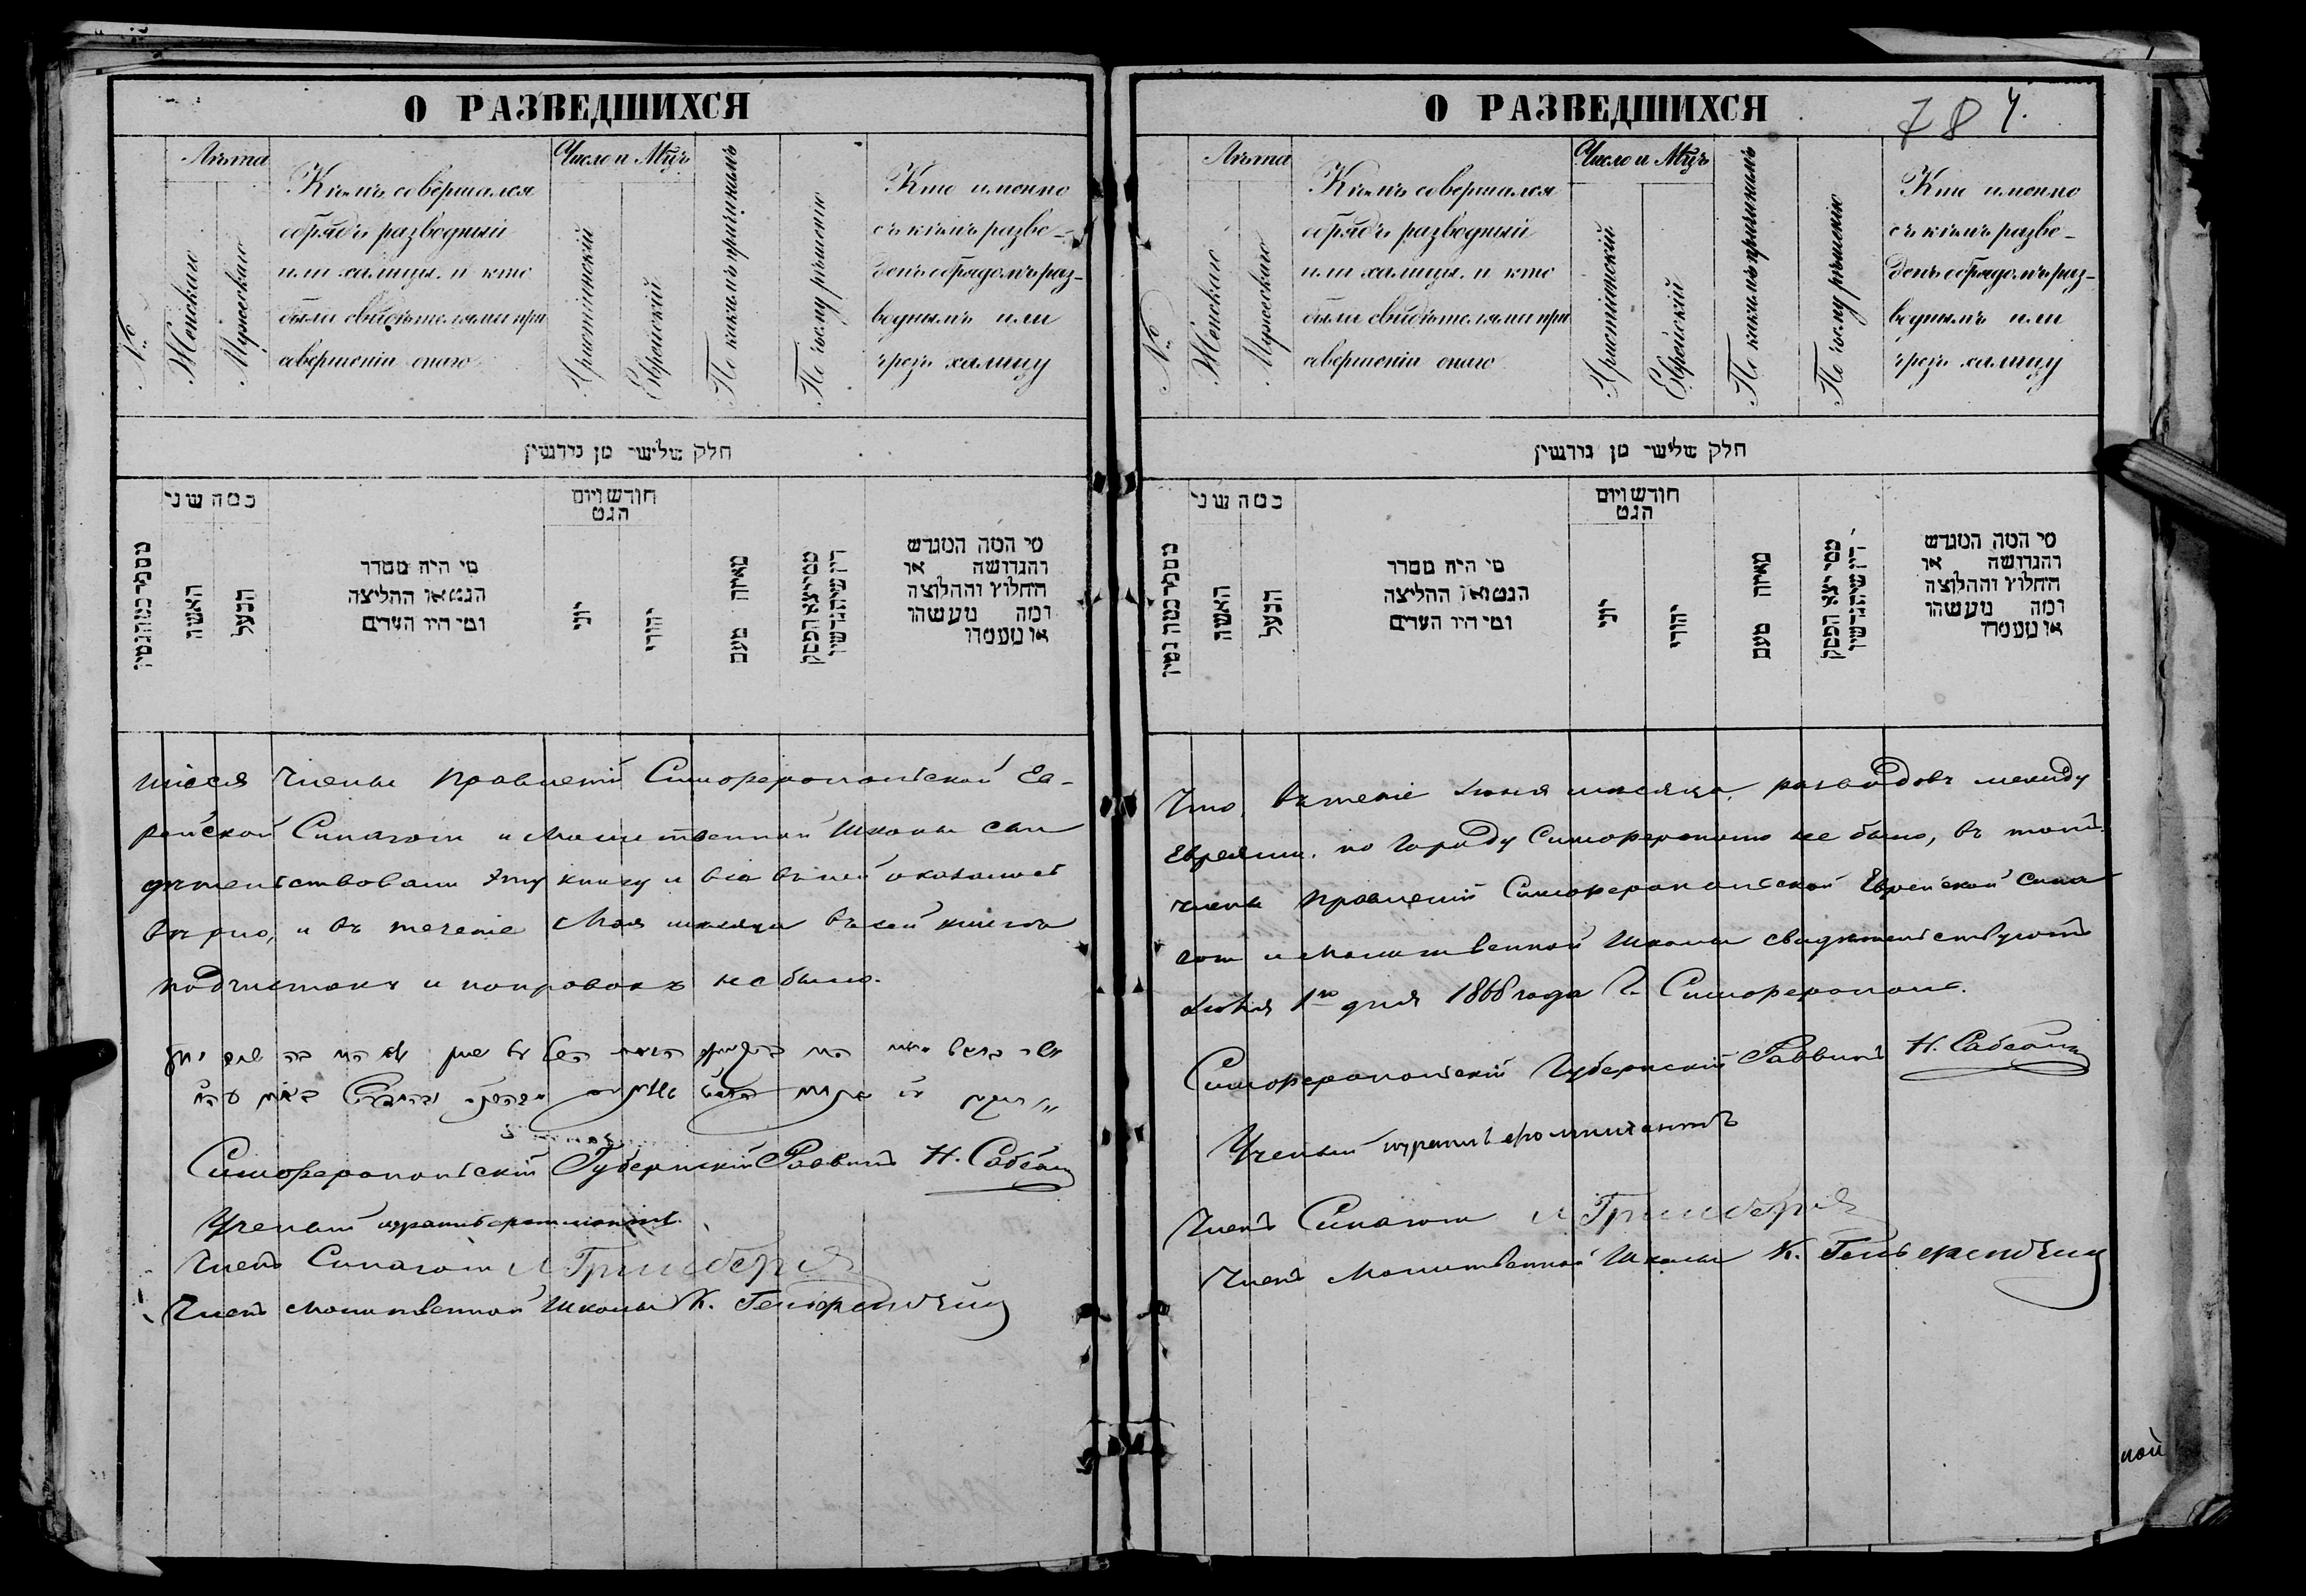 О РАЗВЕДШИХСЯ
№
Лѣта
Женскаго
Мужескаго
Кѣмъ совершался
обрядъ разводный
или халицы, и кто
были свидѣтелями при
совершеніи онаго
Число и Мцъ
Христіянскій
Еврейскій
По какимъ причинамъ
По чьему рѣшенію
Кто именно
съ кѣмъ разве-
денъ обрядомъ раз-
воднымъ или
чрезъ халицу
חלק שלישי מן גירושין
כמה שני
האשה
הבעל
מי היה מסדר
הגט או החליצה
ומי היו העדים
חודש ויום
הגט
יוני
יהודי
מאיזה טעם
מי המה המגרש
והגרושה או
החלוץ והחלוצה
ומה מעשהו
או מעמדו
шіеся Члены Правленій Симферопольской Ев-
рейской Синагоги и Молитвенной Школы сви
дѣтельствовали эту книгу и все въ ней оказалось
вѣрно, и въ теченіе Мая мѣсяца въ сей книгѣ
подчистокъ и поправокъ не было.
Симферопольскій Губернскій Раввинъ Н.
Ученый
Членъ Синагоги Л Гринбергъ
Членъ Молитвенной Школы К.
О РАЗВЕДШИХСЯ
784.
№
Лѣта
Женскаго
Мужескаго
Кѣмъ совершался
обрядъ разводный
или халицы, и кто
были свидѣтелями при
совершеніи онаго
Число и Мцъ
Христіянскій
Еврейскій
По какимъ причинамъ
По чьему рѣшенію
Кто именно
съ кѣмъ разве-
денъ обрядомъ раз-
воднымъ или
чрезъ халицу
חלק שלישי מן גירושין
כמה שני
האשה
הבעל
מי היה מסדר
הגט או החליצה
ומי היו העדים
חודש ויום
הגט
יוני
יהודי
מאיזה טעם
מי המה המגרש
והגרושה או
החלוץ והחלוצה
ומה מעשהו
או מעמדו
Что, въ теченіе Іюня мѣсяца, разводовъ между
Евреями, по городу Симферополю не было, въ томъ
члены Правленій Симферопольской Еврейской Сина
гоги и Молитвенной Школы свидѣтельствуютъ
Іюля 1го дня 1868 года Г. Симферополь.
Симферопольскій Губернскій Раввинъ Н.
Ученый
Членъ Синагоги Л Гринбергъ
Членъ Молитвенной Школы К.
ной